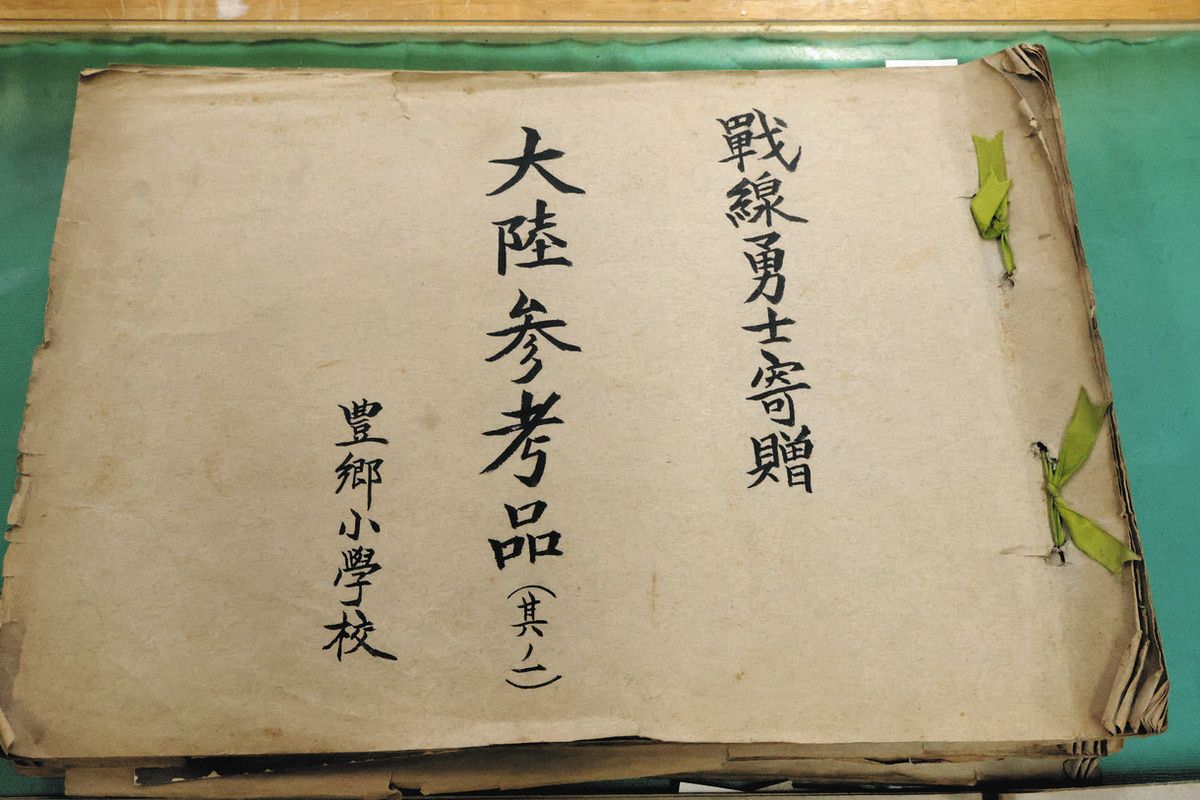 戰線勇士寄贈
大陸参考品（其ノ一）
豊郷小學校